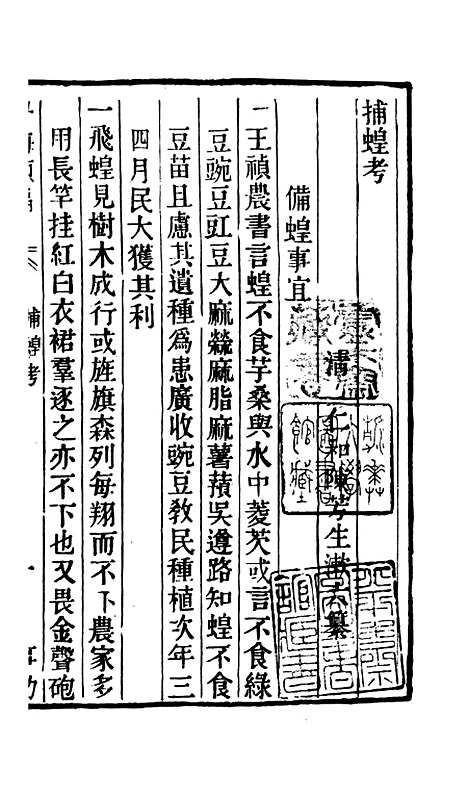 捕蝗考
清 仁和陳芳生漱六纂
備蝗事宜
一王禎農書言蝗不食芋桑與水中菱芡或言不食綠
豆豌豆豇豆大麻檾麻脂麻薯蕷吳遵路知蝗不食
豆苗且慮其遺種爲患廣收豌豆敎民種植次年三
四月民大獲其利
一飛蝗見樹木成行或旌旗森列每翔而不下農家多
用長竿挂紅白衣裙羣逐之亦不下也又畏金聲砲
捕蝗考 一